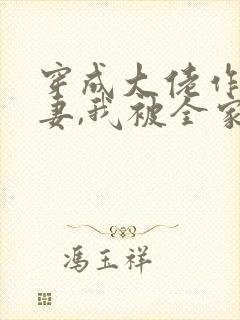 穿成大佬作
妻,我被全家
冯玉祥